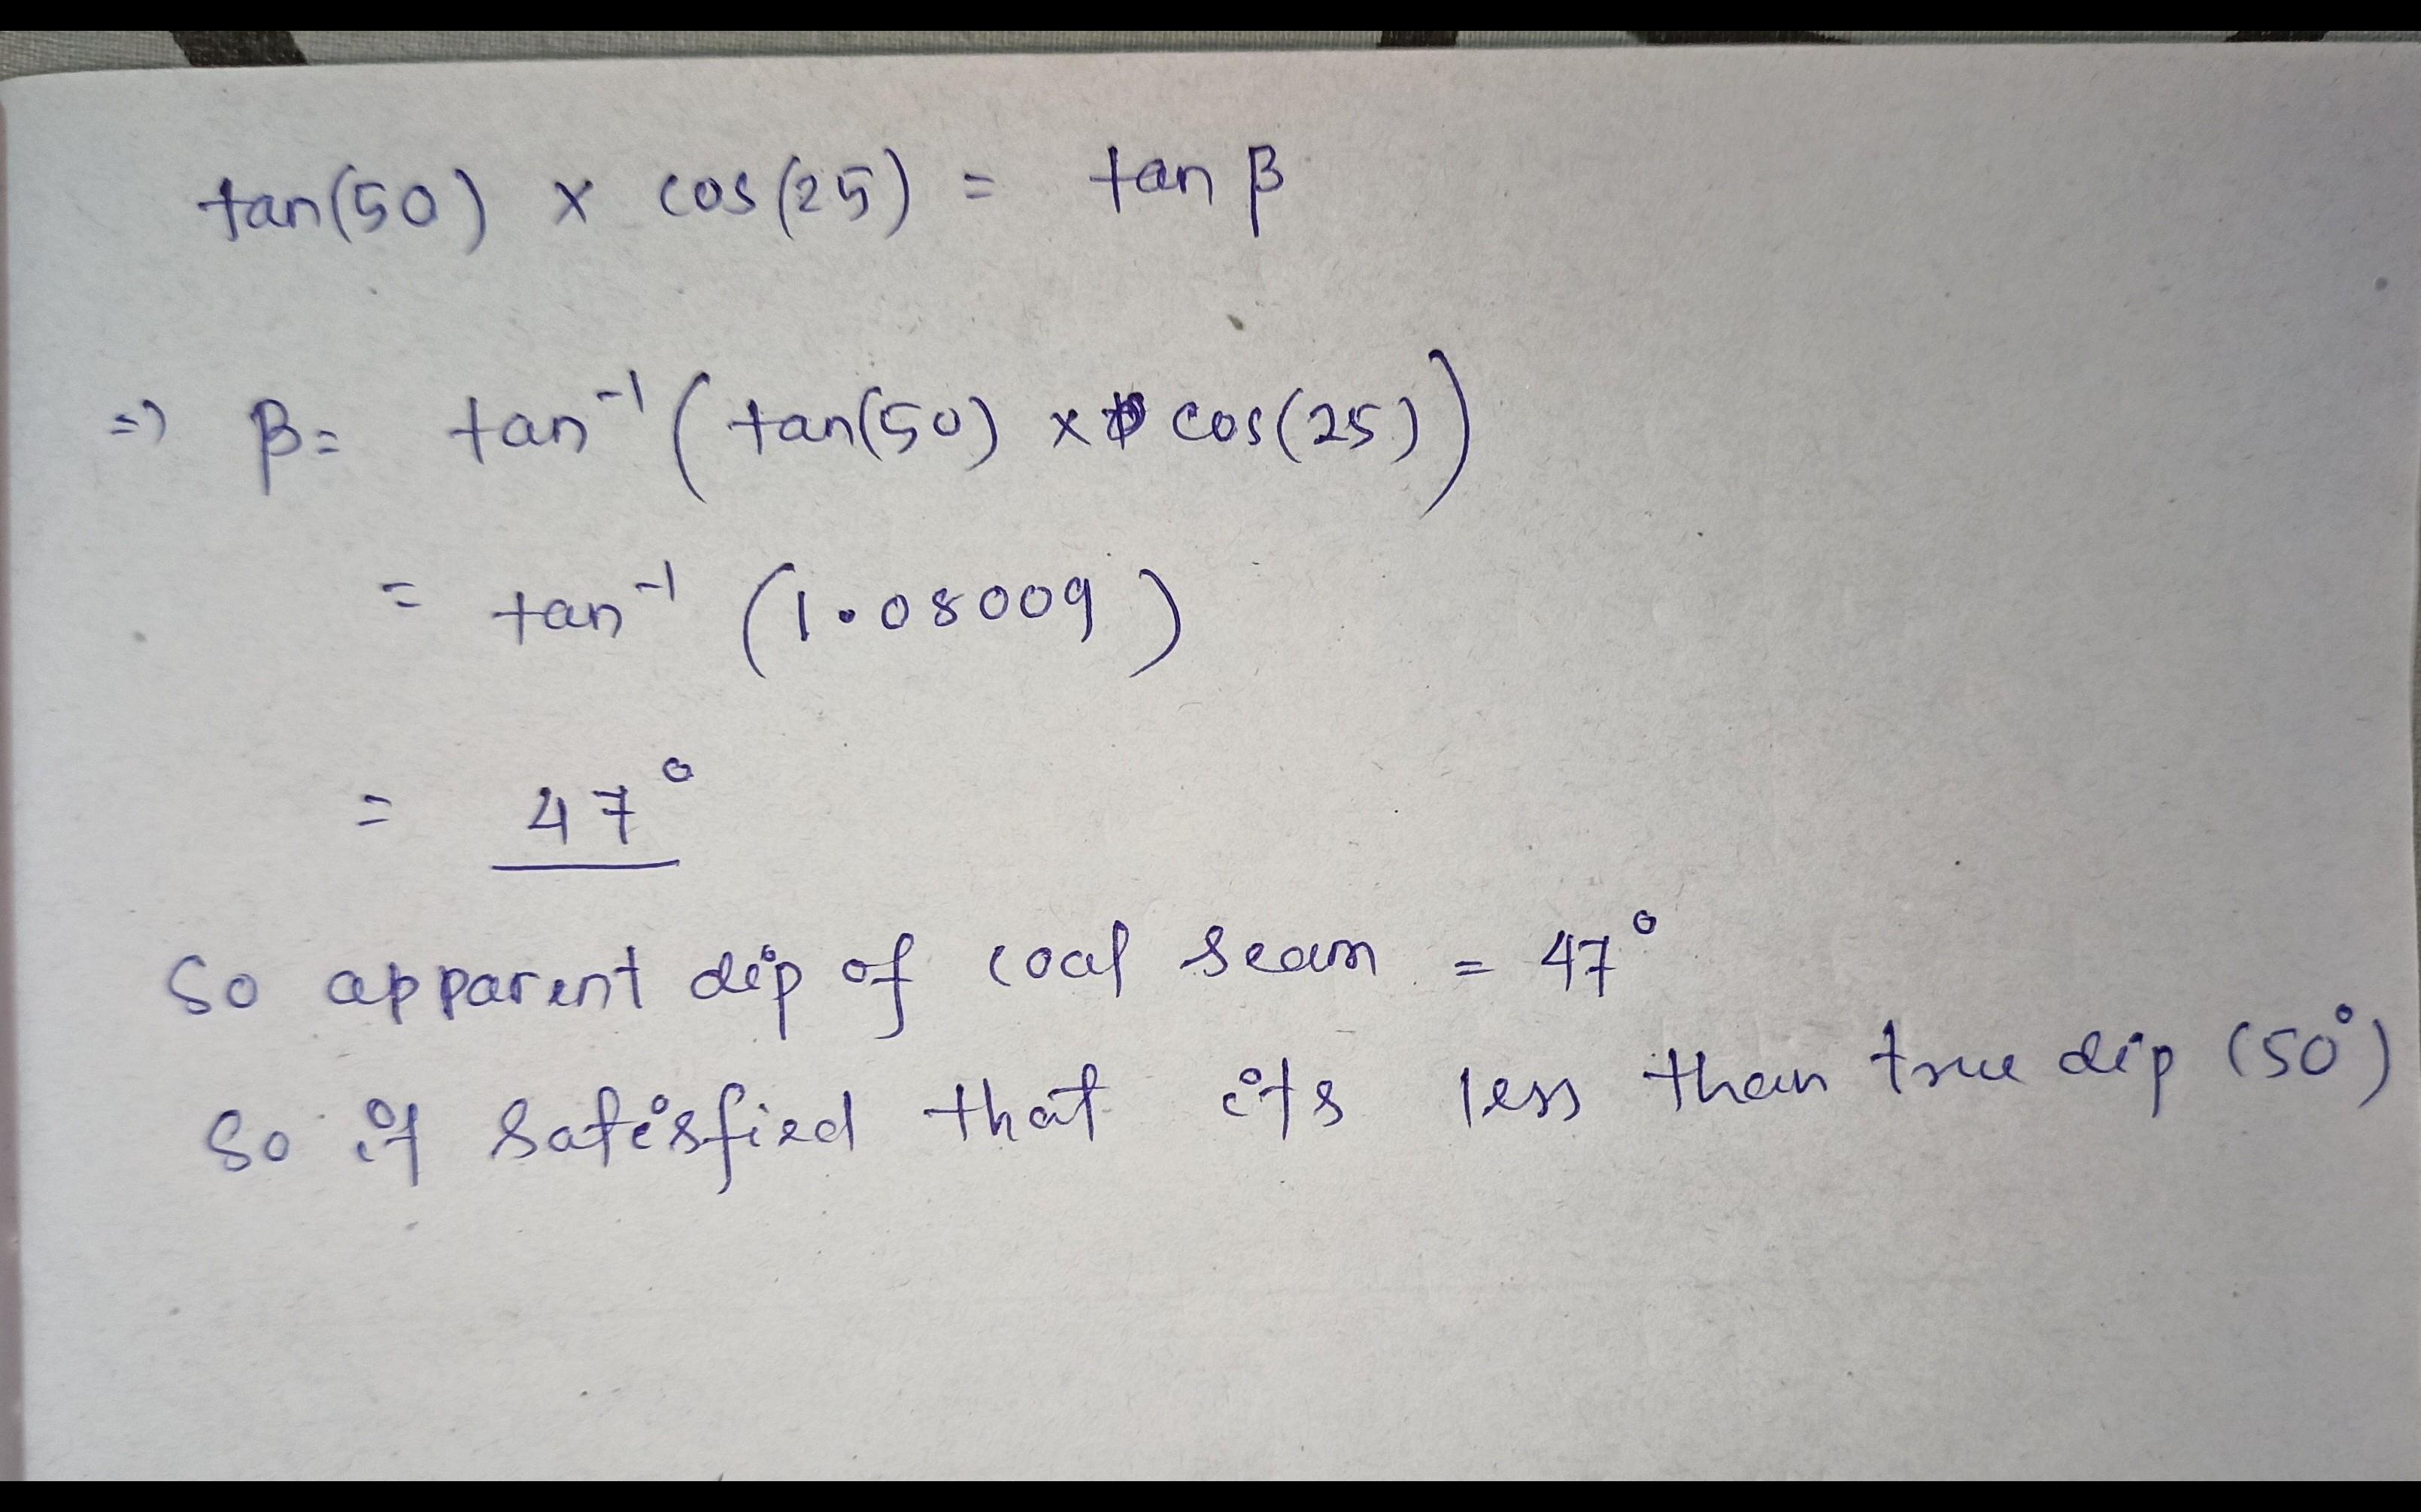 tan(50) x cos(25) = tan β
=> β= tan⁻¹(tan(50) x cos(25))
= tan⁻¹ (1.08009)
= 47°
So apparent dip of coal seam = 47°
So it satisfied that its less than true dip (50°)